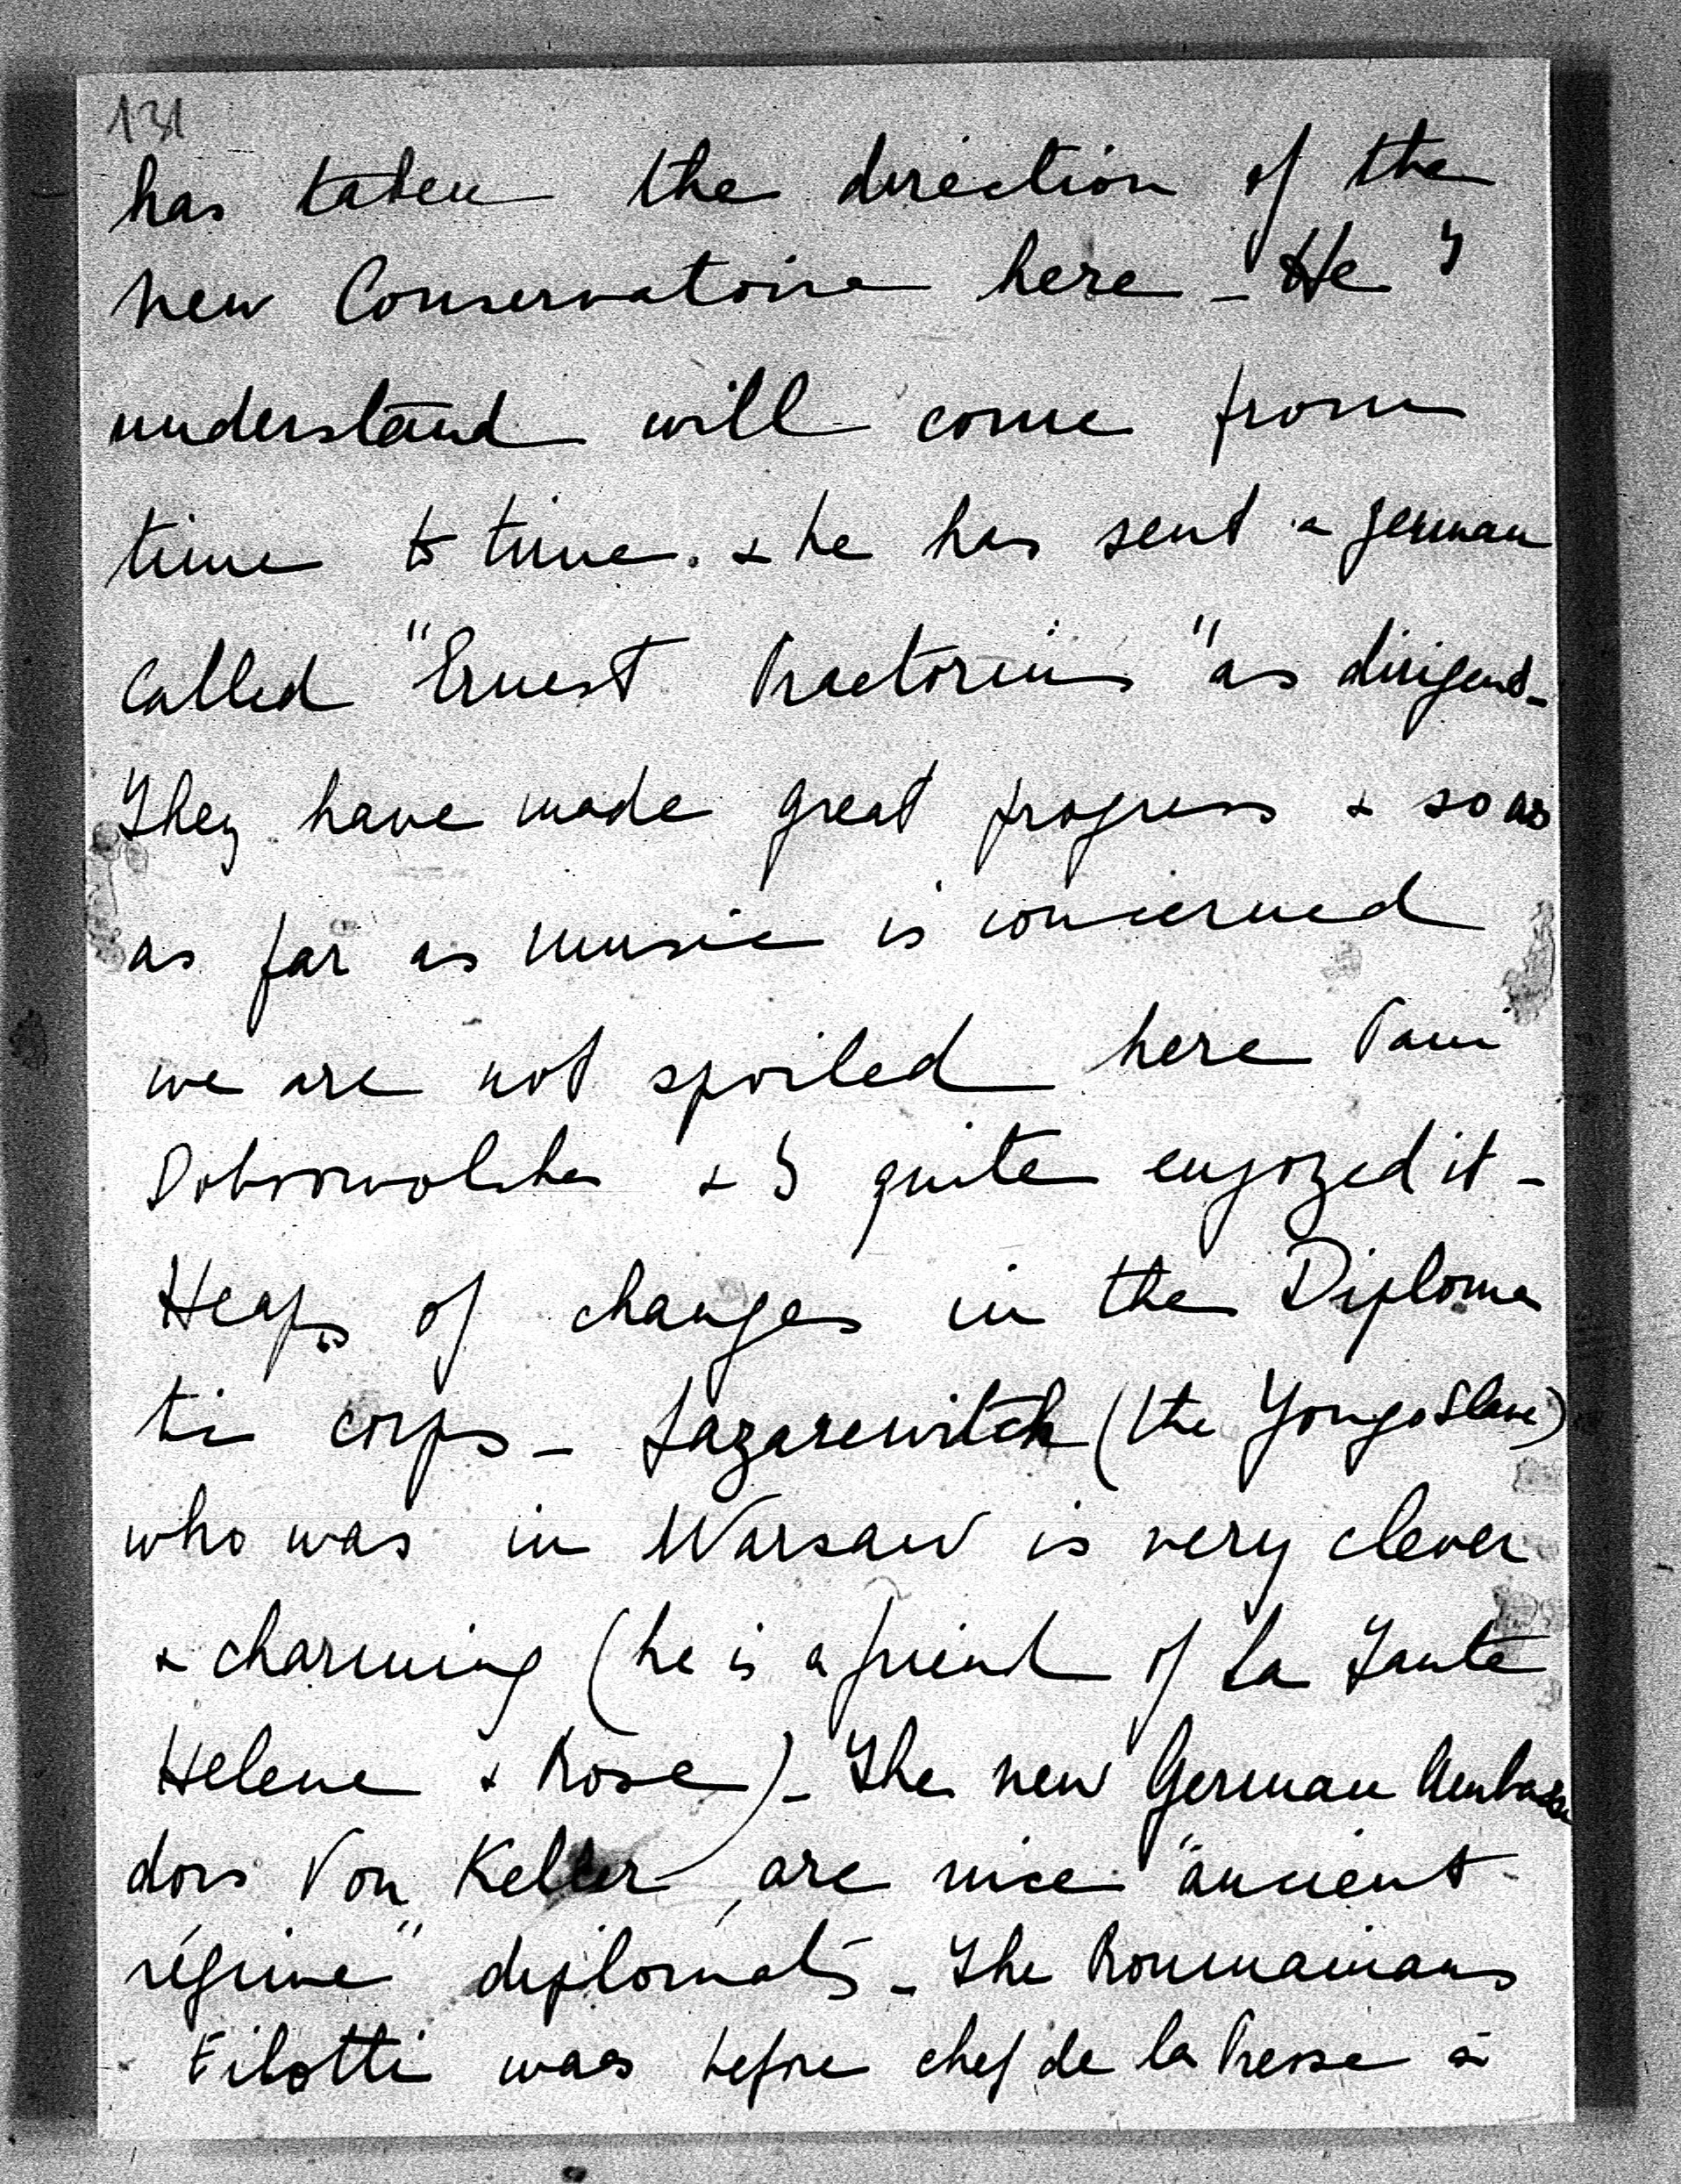 131
has taken the direction of the
new Conservatoire here _ He I
understand will come from
time to time. & he has send a german
called "Ernest Praetorius" as dirigent _
They have made great progress & so as
as far as music is concerned
we are not spoiled here Pani
Dobrowolska & I quite enjoyed it -
Heaps of changes in the Diploma
tic corps _ Lazarewitch (the YougoSlave)
who was in Warsaw is very clever
& charming (he is a friend of La Tante
Helene & Rose) _ The new German Ambassa
dors Von Keller, are nice "ancient
régime" diplomats _ The Roumainians
Filotti was before chef de la Presse à